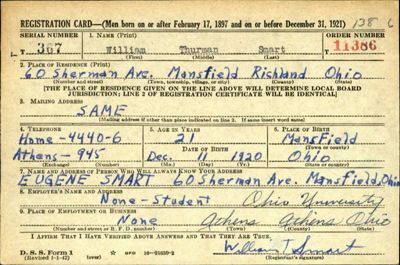 REGISTRATION CARD—(Men born on or after February 17, 1897 and on or before December 31, 1921) 138 6
SERIAL NUMBER 1. NAME (Print) ORDER NUMBER
T 367 William Thurman Smart T 11386
(First) (Middle) (Last)
2. PLACE OF RESIDENCE (Print)
60 Sherman Ave. Mansfield Richland Ohio
(Number and street) (Town, township, village, or city) (County) (State)
[THE PLACE OF RESIDENCE GIVEN ON THE LINE ABOVE WILL DETERMINE LOCAL BOARD
JURISDICTION; LINE 2 OF REGISTRATION CERTIFICATE WILL BE IDENTICAL]
3. MAILING ADDRESS
SAME
[Mailing address if other than place indicated on line 2. If same insert word same]
4. TELEPHONE 5. AGE IN YEARS 6. PLACE OF BIRTH
Home-4440-6 21 Mansfield
DATE OF BIRTH (Town or county)
Athens-945 Dec. 11 1920 Ohio
(Exchange) (Number) (Mo.) (Day) (Yr.) (State or country)
7. NAME AND ADDRESS OF PERSON WHO WILL ALWAYS KNOW YOUR ADDRESS
EUGENE SMART 60 Sherman Ave. Mansfield, Ohio
8. EMPLOYER'S NAME AND ADDRESS
None-Student Ohio University
9. PLACE OF EMPLOYMENT OR BUSINESS
None Athens Athens Ohio
(Number and street or R. F. D. number) (Town) (County) (State)
I AFFIRM THAT I HAVE VERIFIED ABOVE ANSWERS AND THAT THEY ARE TRUE.
D. S. S. Form 1 William T. Smart
(Revised 1-1-42) (over) 16—21630-2 (Registrant's signature)